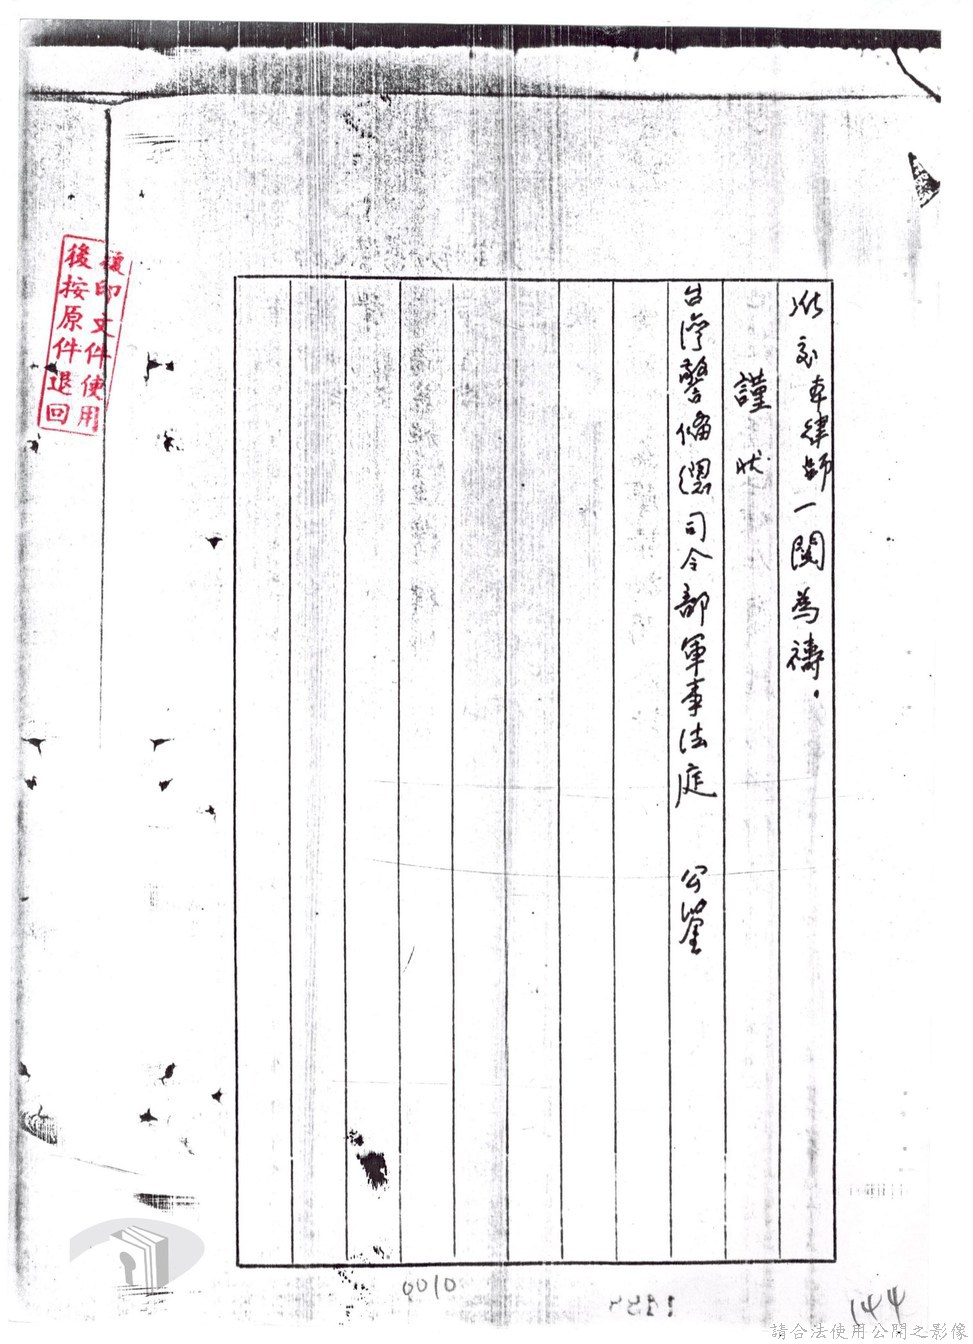 此交本律師一閱為禱.
謹狀
台灣警備總司令部軍事法庭 公鑒
複印文件使用
後按原件退回
0010
144
請合法使用公開之影像